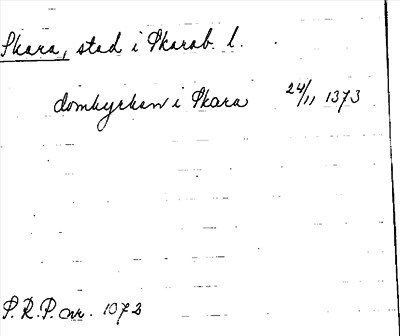 Skara, stad i Skarab. l.
domkyrkan i Skara 24/11 1373
P.R.P. nr. 1073